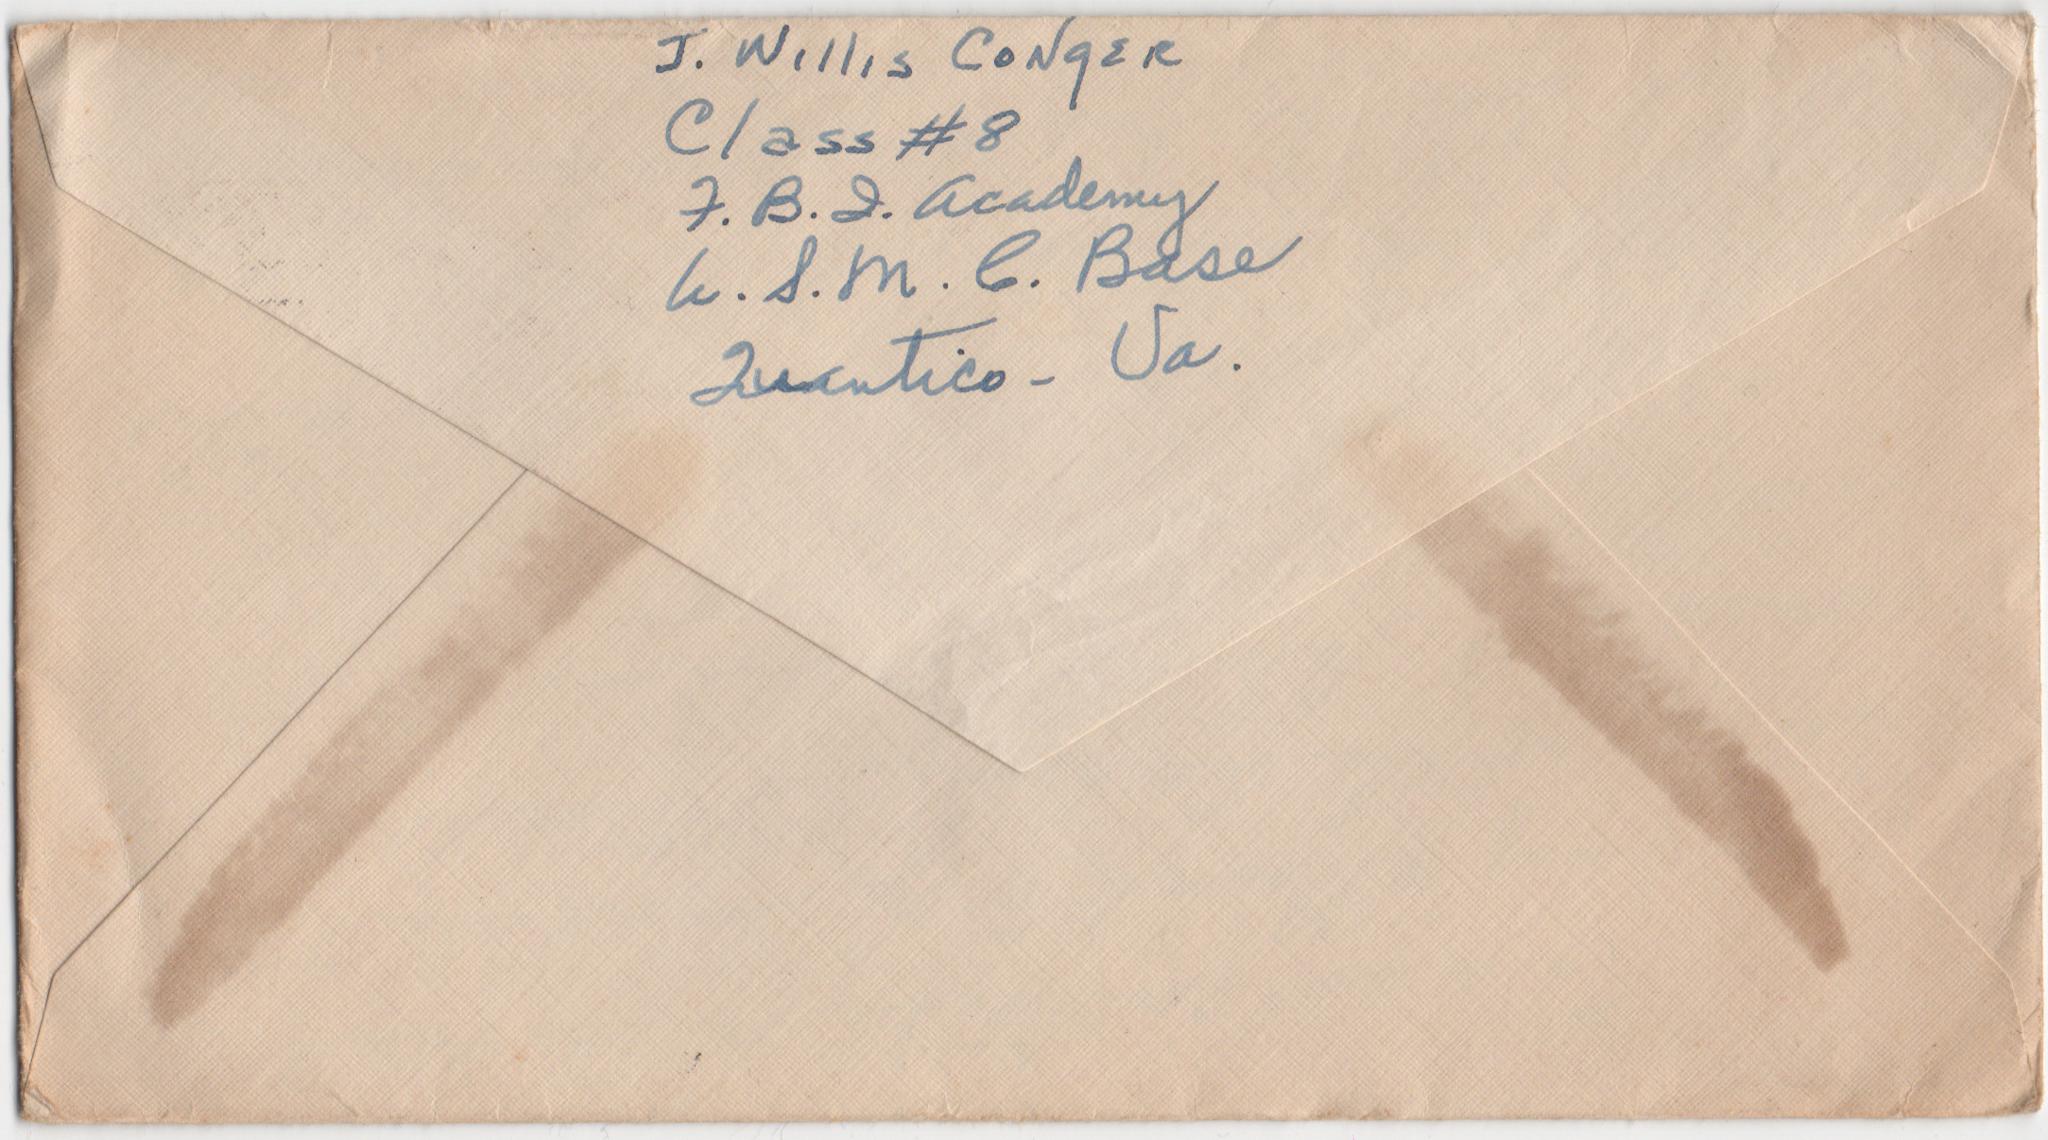 J. Willis Conger
Class #8
F. B. I. Academy
U. S. M. C. Base
Quantico - Va.